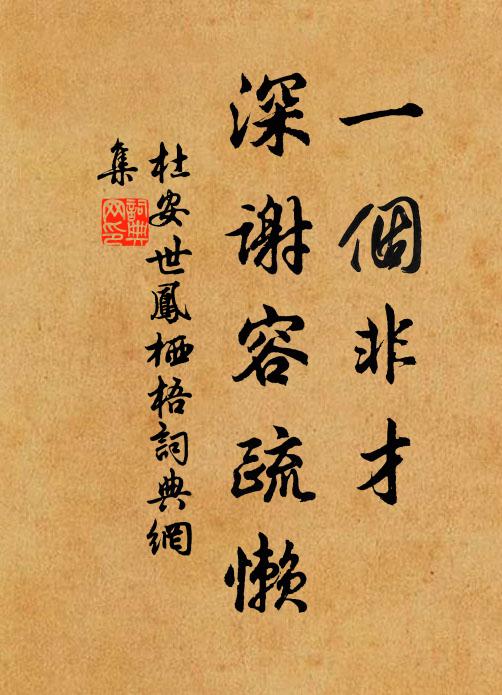 一個非才
深謝容疏懶
杜安世鳳栖梧詞典網
集
詞典網印